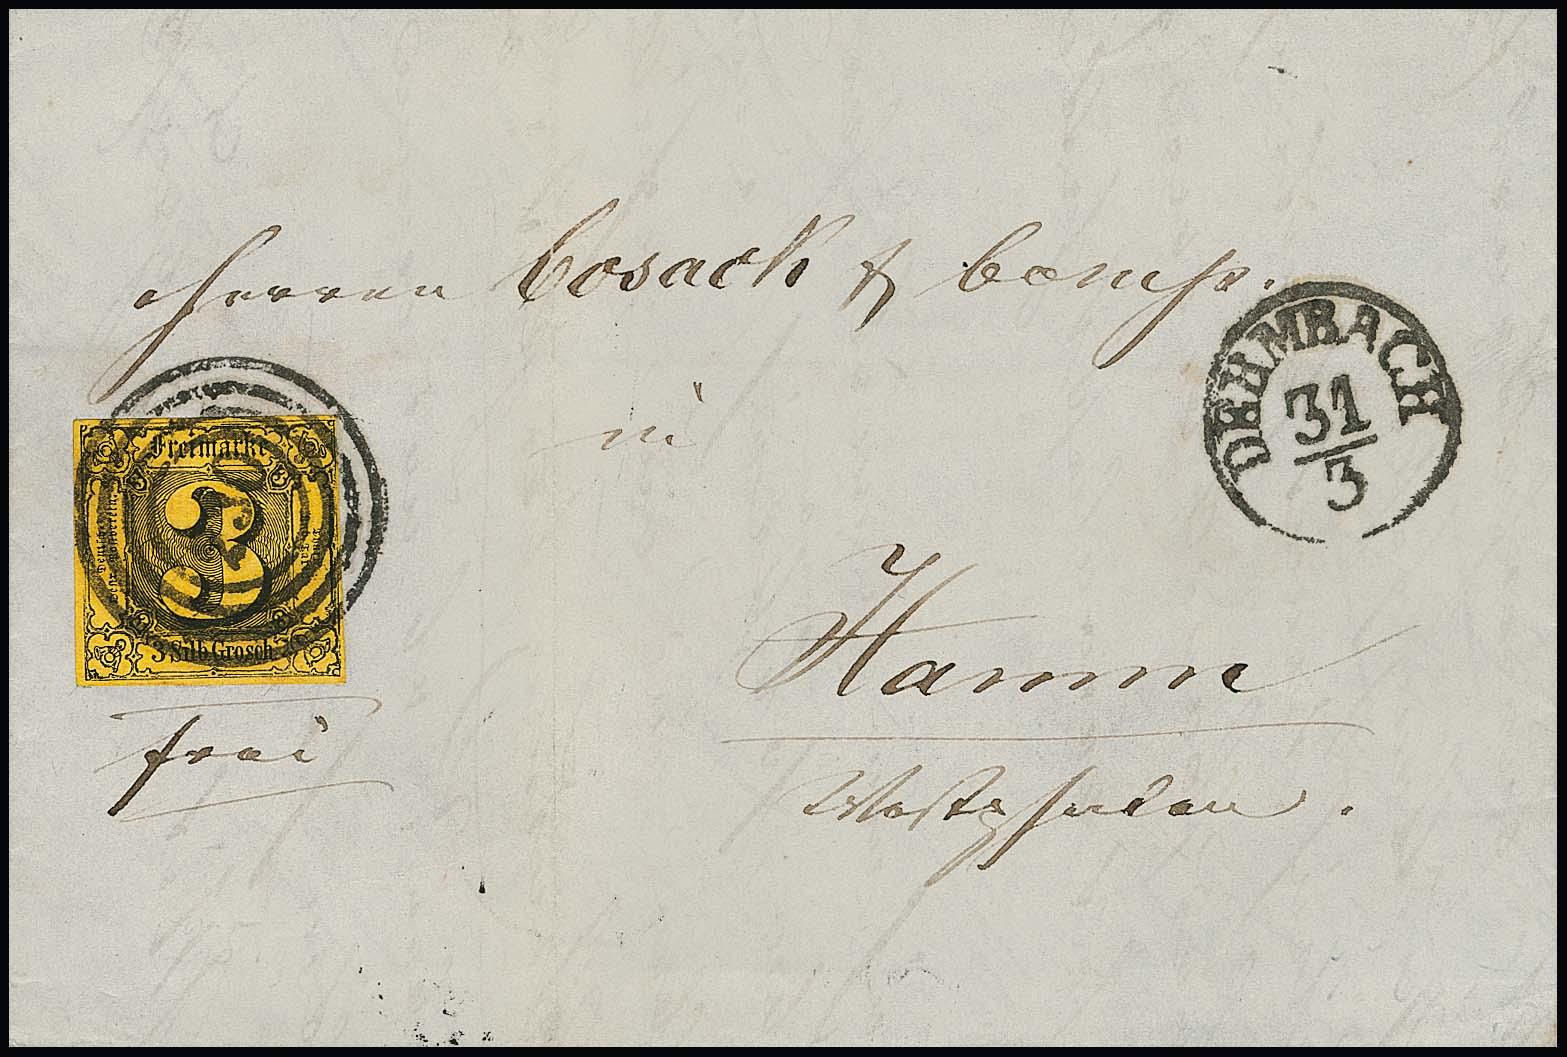 Herren Cosack & Comp.
in
Hamm
Westphalen.
frei
Freimarke
3
3 Silb. Grosch.
DERMBACH
31
3